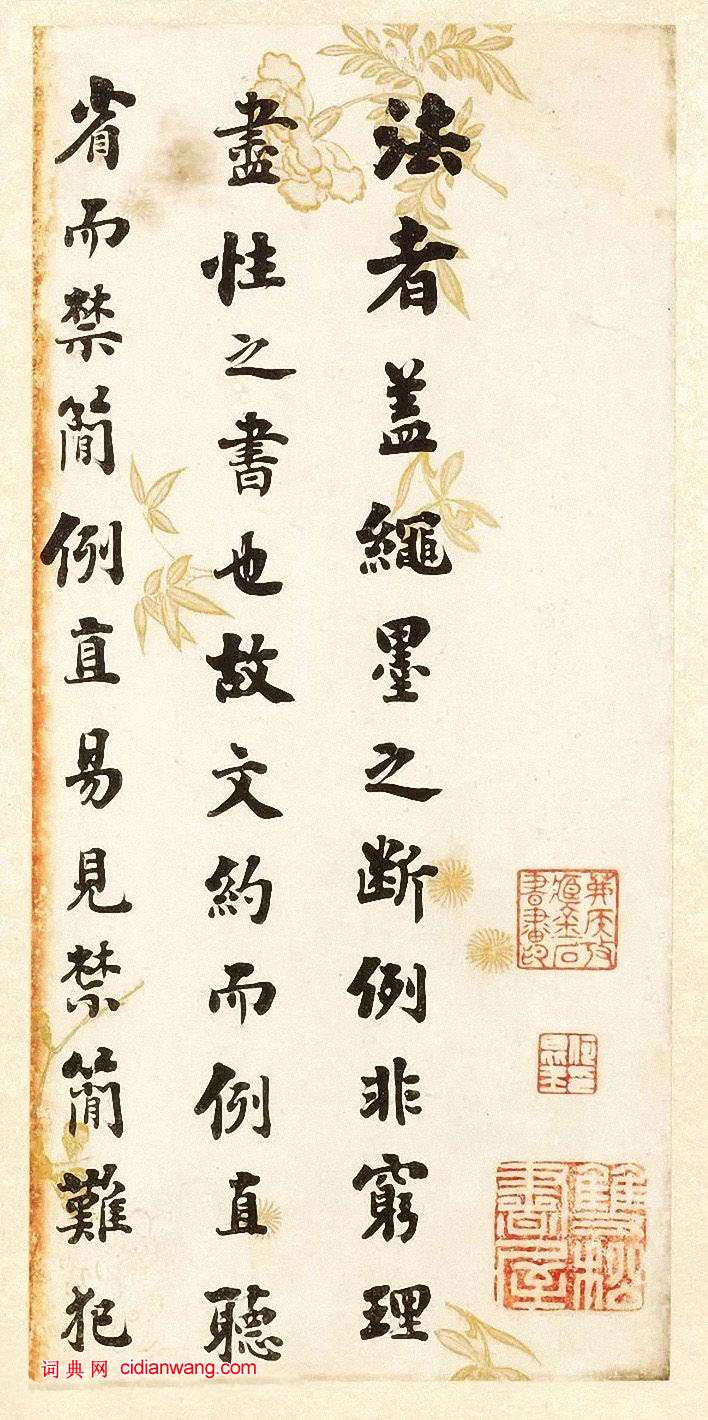 法者盖繩墨之断例非窮理
盡性之書也故文約而例直聽
省而禁簡例直易見禁簡難犯
雙松書屋
词典网 cidianwang.com